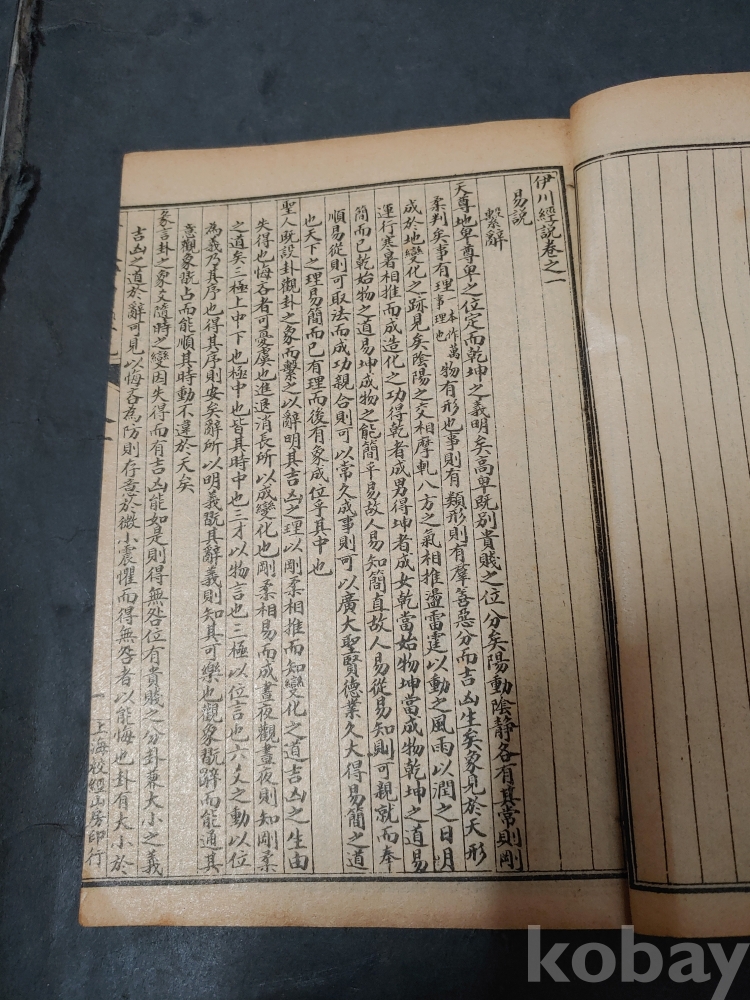 伊川經說卷之一
易說
繫辭
天尊地卑尊卑之位定而乾坤之義明矣高卑既别貴賤之位分矣陽動陰靜各有其常則剛
柔判矣事有理一本作萬事理也物有形也事則有類形則有羣善惡分而吉凶生矣象見於天形
成於地變化之跡見矣陰陽之交相摩軋八方之氣相推盪雷霆以動之風雨以潤之日月
運行寒暑相推而成造化之功得乾者成男得坤者成女乾當始物坤當成物乾坤之道易
簡而已乾始物之道易坤成物之能簡平易故人易知簡直故人易從易知則可親就而奉
順易從則可取法而成功親合則可以常久成事則可以廣大聖賢德業久大得易簡之道
也天下之理易簡而已有理而後有象成位乎其中也
聖人既設卦觀卦之象而繫之以辭明其吉凶之理以剛柔相推而知變化之道吉凶之生由
失得也悔吝者可憂虞也進退消長所以成變化也剛柔相易而成晝夜觀晝夜則知剛柔
之道矣三極上中下也極中也皆其時中也三才以物言也三極以位言也六爻之動以位
為義乃其序也得其序則安矣辭所以明義翫其辭義則知其可樂也觀象翫辭而能通其
意觀象翫占而能順其時動不違於天矣
彖言卦之象爻隨時之變因失得而有吉凶能如是則得無咎位有貴賤之分卦兼大小之義
吉凶之道於辭可見以悔吝為防則存意於微小震懼而得無咎者以能悔也卦有大小於
一
上海校經山房印行
kobay